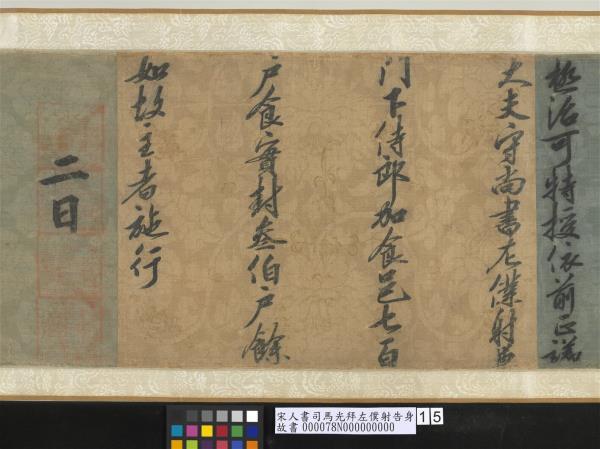 極治可特授依前正議
大夫守尚書左僕射兼
門下侍郎加食邑七百
戶食實封叁伯戶餘
如故主者施行
二日
宋人書司馬光拜左僕射告身
15
故書 000078N000000000